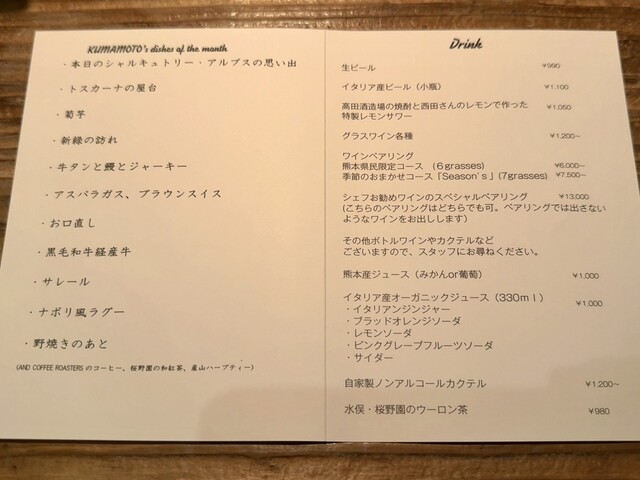 KUMAMOTO's dishes of the month
・本日のシャルキュトリー・アルプスの思い出
・トスカーナの屋台
・菊芋
・新緑の訪れ
・牛タンと鰻とジャーキー
・アスパラガス、ブラウンスイス
・お口直し
・黒毛和牛経産牛
・サレール
・ナポリ風ラグー
・野焼きのあと
(AND COFFEE ROASTERS のコーヒー、桜野園の和紅茶、産山ハーブティー)
Drink
生ビール ¥990
イタリア産ビール（小瓶） ¥1,100
高田酒造場の焼酎と西田さんのレモンで作った ¥1,050
特製レモンサワー
グラスワイン各種 ¥1,200~
ワインペアリング
熊本県民限定コース （6grasses) ¥6,000~
季節のおまかせコース「Season's」(7grasses) ¥7,500~
シェフお勧めワインのスペシャルペアリング ¥13,000
(こちらのペアリングはどちらでも可。ペアリングでは出さない
ようなワインをお出しします）
その他ボトルワインやカクテルなど
ございますので、スタッフにお尋ねください。
熊本産ジュース（みかんor葡萄） ¥1,000
イタリア産オーガニックジュース（330ml） ¥1,000
・イタリアンジンジャー
・ブラッドオレンジソーダ
・レモンソーダ
・ピンクグレープフルーツソーダ
・サイダー
自家製ノンアルコールカクテル ¥1,200~
水俣・桜野園のウーロン茶 ¥980